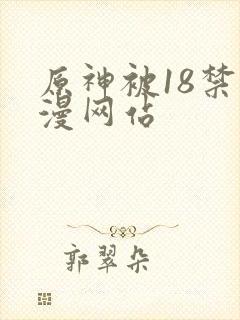 原神被18禁
漫网佔
郭翠朵